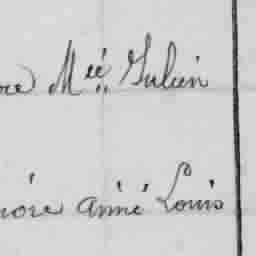 ore Mée Julien
noré Aimé Louis